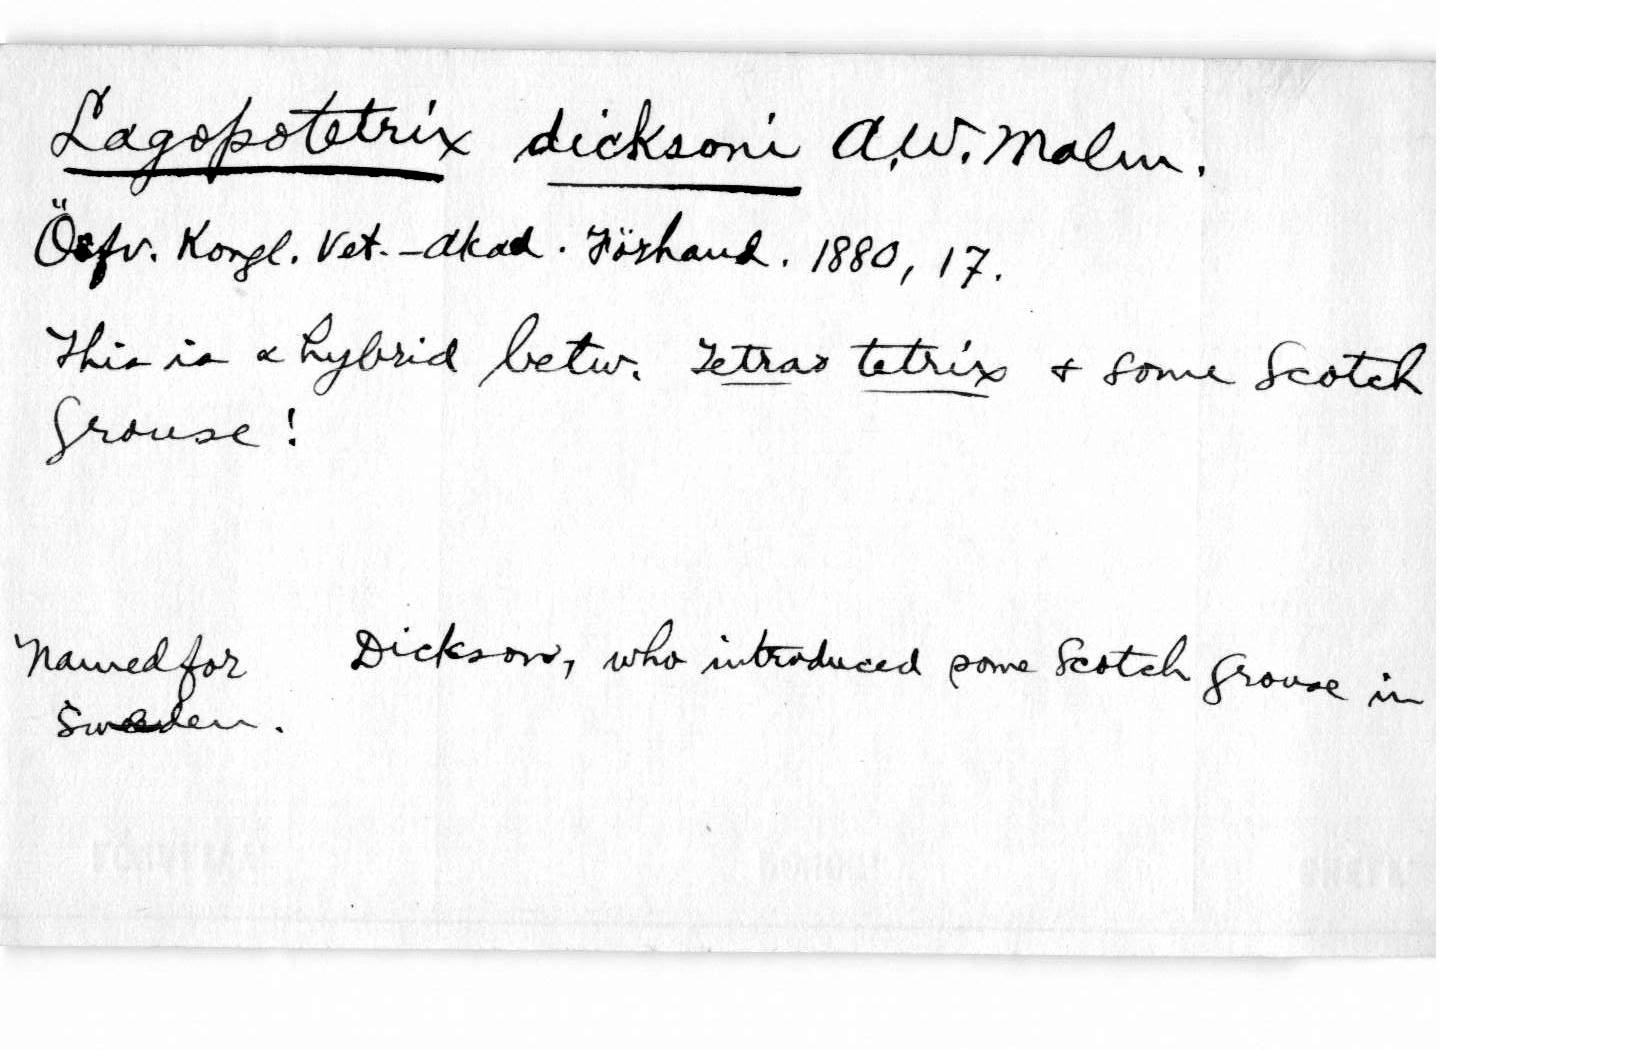 Lagopotetrix dicksoni A.W. Malm.
Öfv. Kongl. Vet.-Akad. Förhand. 1880, 17.
This is a hybrid betw. Tetrao tetrix & some Scotch
Grouse!
Named for Dickson, who introduced some Scotch Grouse in
Sweden.